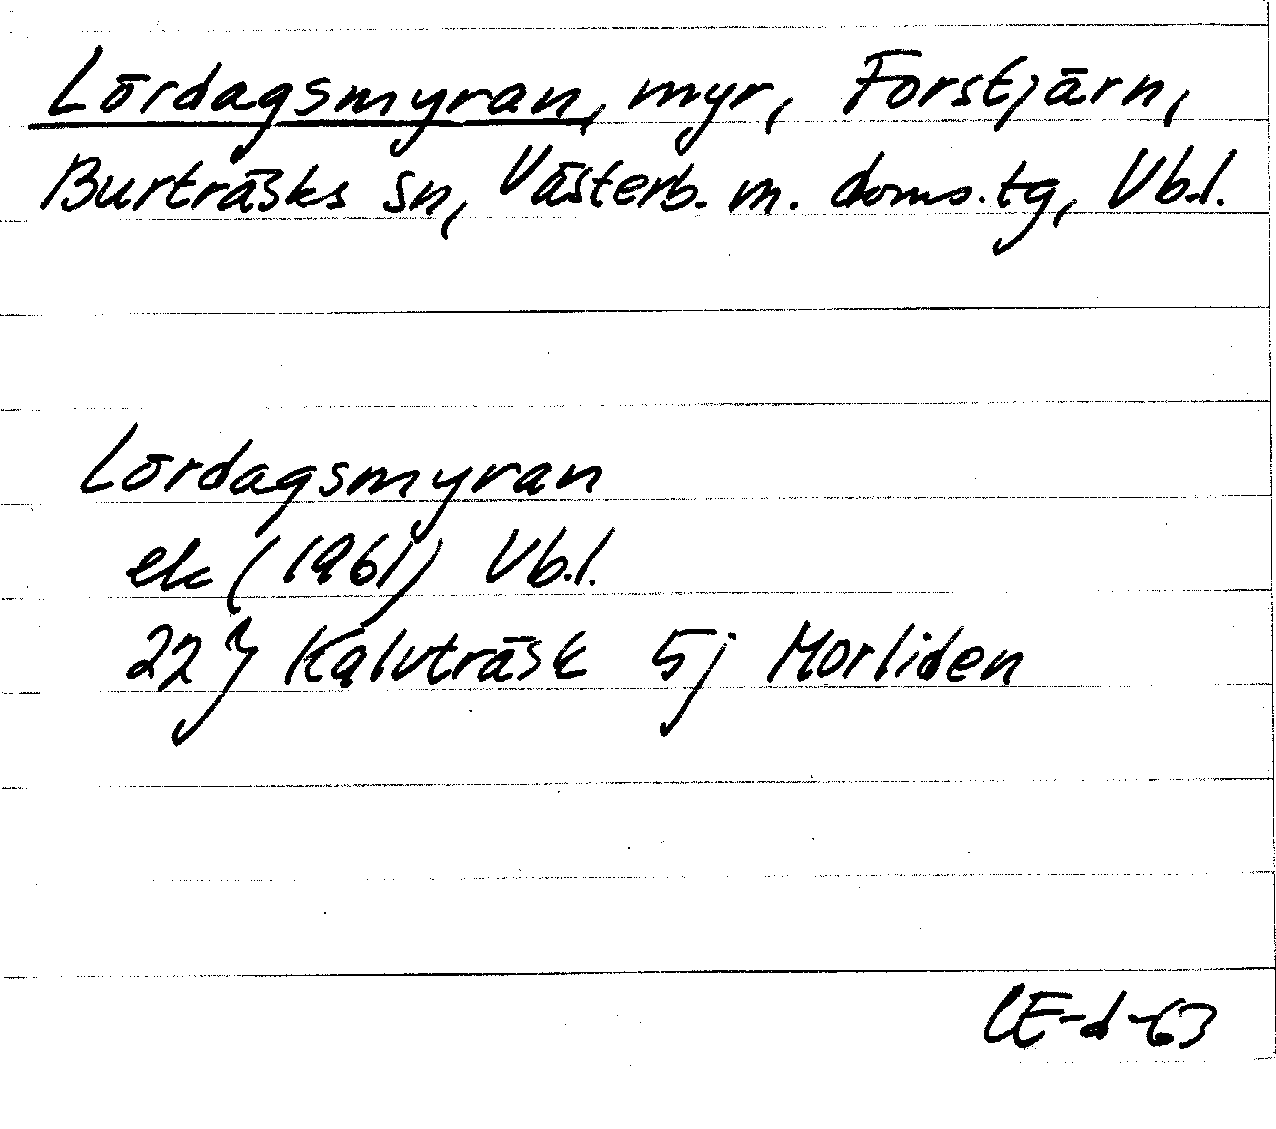 Lördagsmyran, myr, Forstjärn,
Burträsks sn, Västerb. m. doms.tg, Vb.l.
Lördagsmyran
ek (1961) Vb.l.
22 J Kalvträsk 5j Morliden
CE-d-63